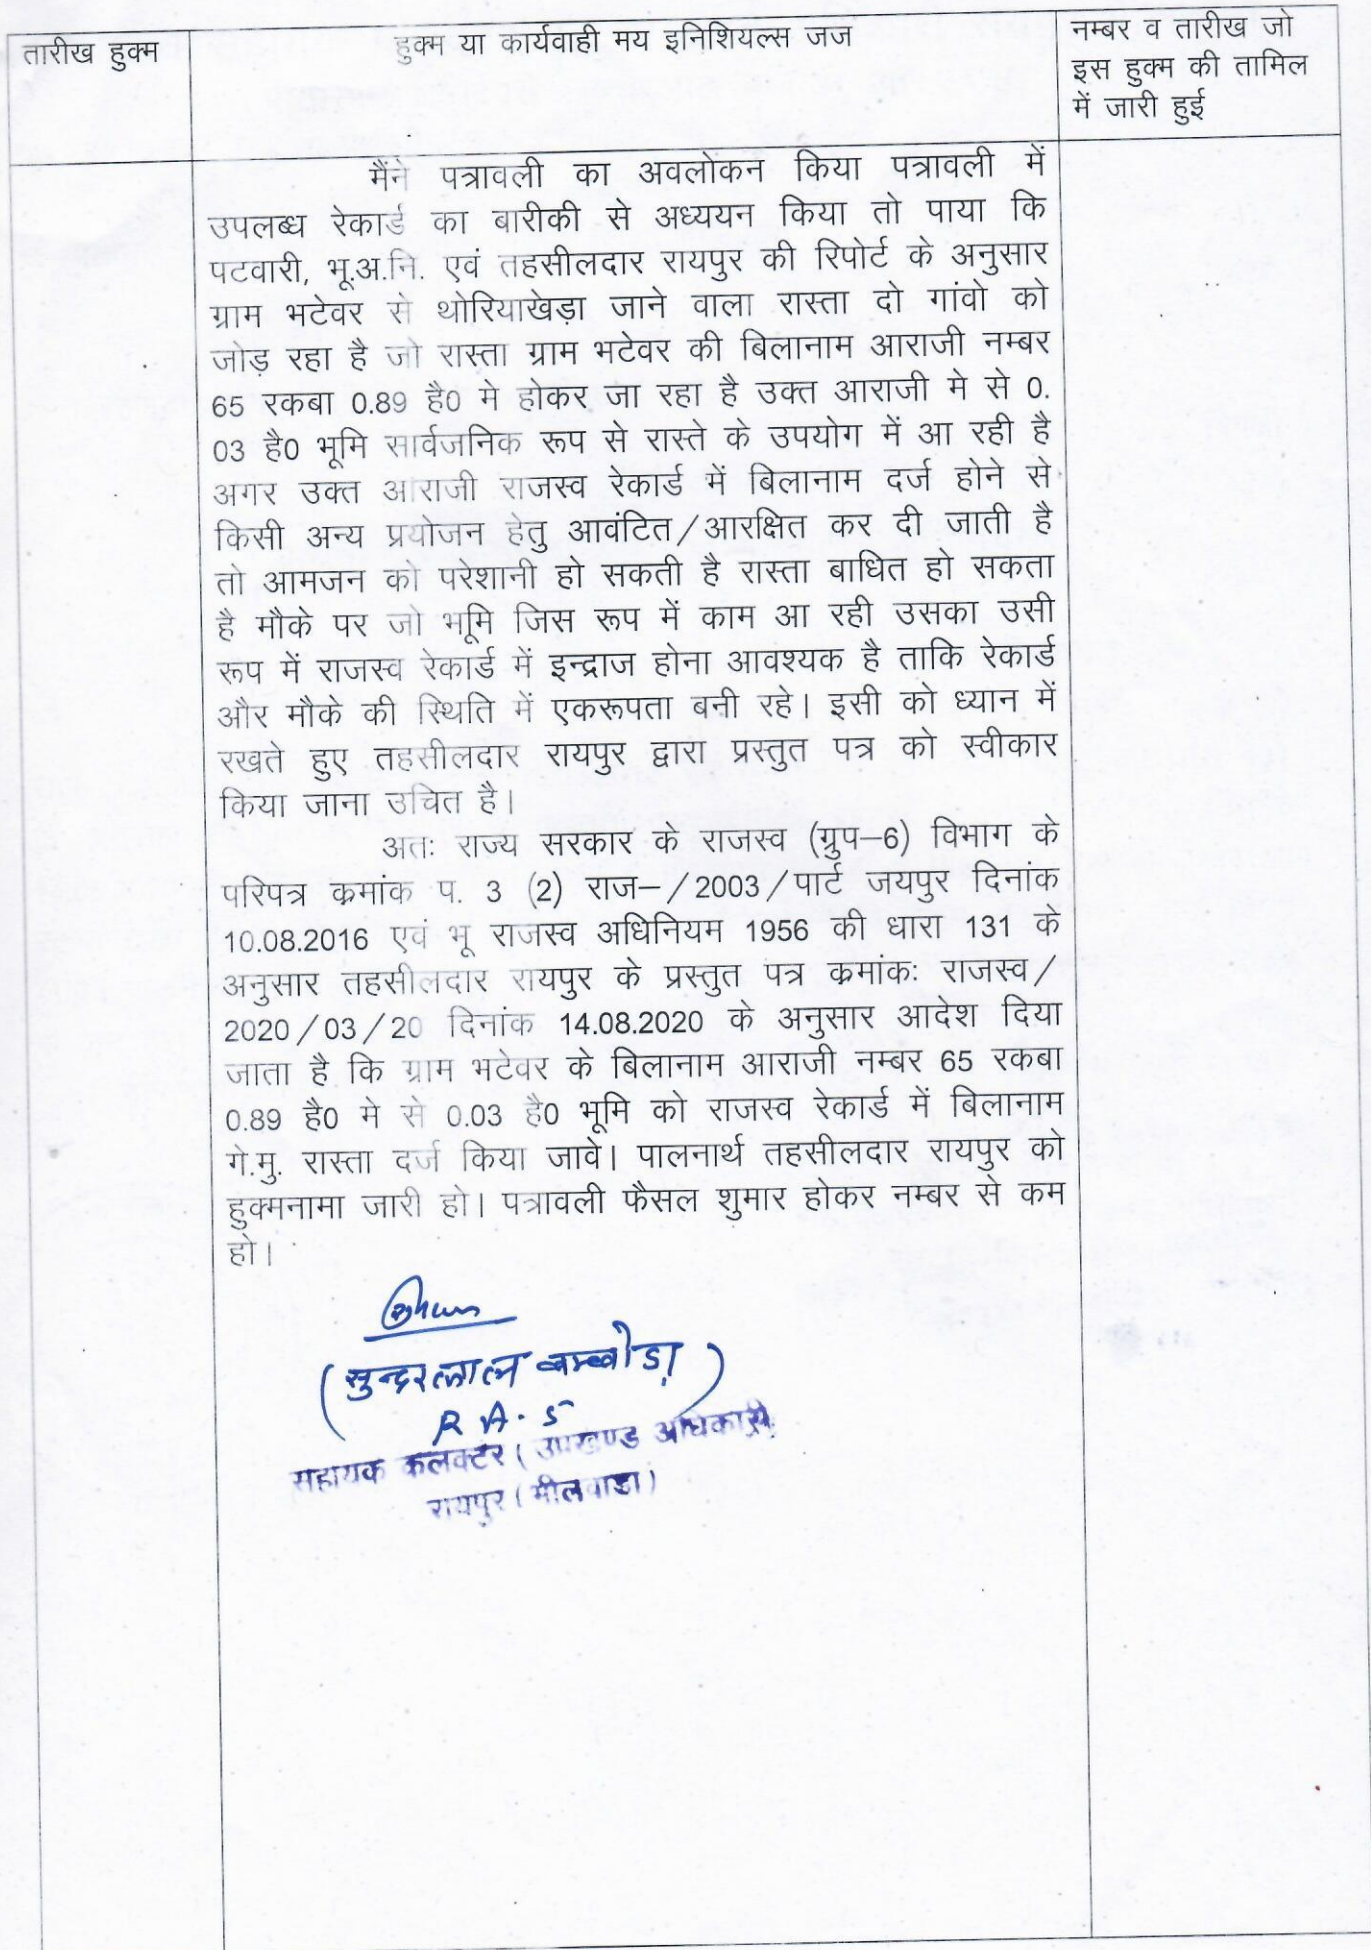 तारीख हुक्म
हुक्म या कार्यवाही मय इनिशियल्स जज
नम्बर व तारीख जो
इस हुक्म की तामिल
में जारी हुई
मैंने पत्रावली का अवलोकन किया पत्रावली में
उपलब्ध रेकार्ड का बारीकी से अध्ययन किया तो पाया कि
पटवारी, भू.अ.नि. एवं तहसीलदार रायपुर की रिपोर्ट के अनुसार
ग्राम भटेवर से थोरियाखेड़ा जाने वाला रास्ता दो गांवो को
जोड़ रहा है जो रास्ता ग्राम भटेवर की बिलानाम आराजी नम्बर
65 रकबा 0.89 है0 मे होकर जा रहा है उक्त आराजी मे से 0.
03 है0 भूमि सार्वजनिक रूप से रास्ते के उपयोग में आ रही है
अगर उक्त आराजी राजस्व रेकार्ड में बिलानाम दर्ज होने से
किसी अन्य प्रयोजन हेतु आवंटित/आरक्षित कर दी जाती है
तो आमजन को परेशानी हो सकती है रास्ता बाधित हो सकता
है मौके पर जो भूमि जिस रूप में काम आ रही उसका उसी
रूप में राजस्व रेकार्ड में इन्द्राज होना आवश्यक है ताकि रेकार्ड
और मौके की स्थिति में एकरूपता बनी रहे। इसी को ध्यान में
रखते हुए तहसीलदार रायपुर द्वारा प्रस्तुत पत्र को स्वीकार
किया जाना उचित है।
अतः राज्य सरकार के राजस्व (ग्रुप–6) विभाग के
परिपत्र क्रमांक प. 3 (2) राज–/2003/पार्ट जयपुर दिनांक
10.08.2016 एवं भू राजस्व अधिनियम 1956 की धारा 131 के
अनुसार तहसीलदार रायपुर के प्रस्तुत पत्र क्रमांकः राजस्व/
2020/03/20 दिनांक 14.08.2020 के अनुसार आदेश दिया
जाता है कि ग्राम भटेवर के बिलानाम आराजी नम्बर 65 रकबा
0.89 है0 मे से 0.03 है0 भूमि को राजस्व रेकार्ड में बिलानाम
गे.मु. रास्ता दर्ज किया जावे। पालनार्थ तहसीलदार रायपुर को
हुक्मनामा जारी हो। पत्रावली फैसल शुमार होकर नम्बर से कम
हो।
(सुन्दरलाल बम्बोडा)
R A. S
सहायक कलक्टर (उपखण्ड अधिकारी)
रायपुर (भीलवाडा)